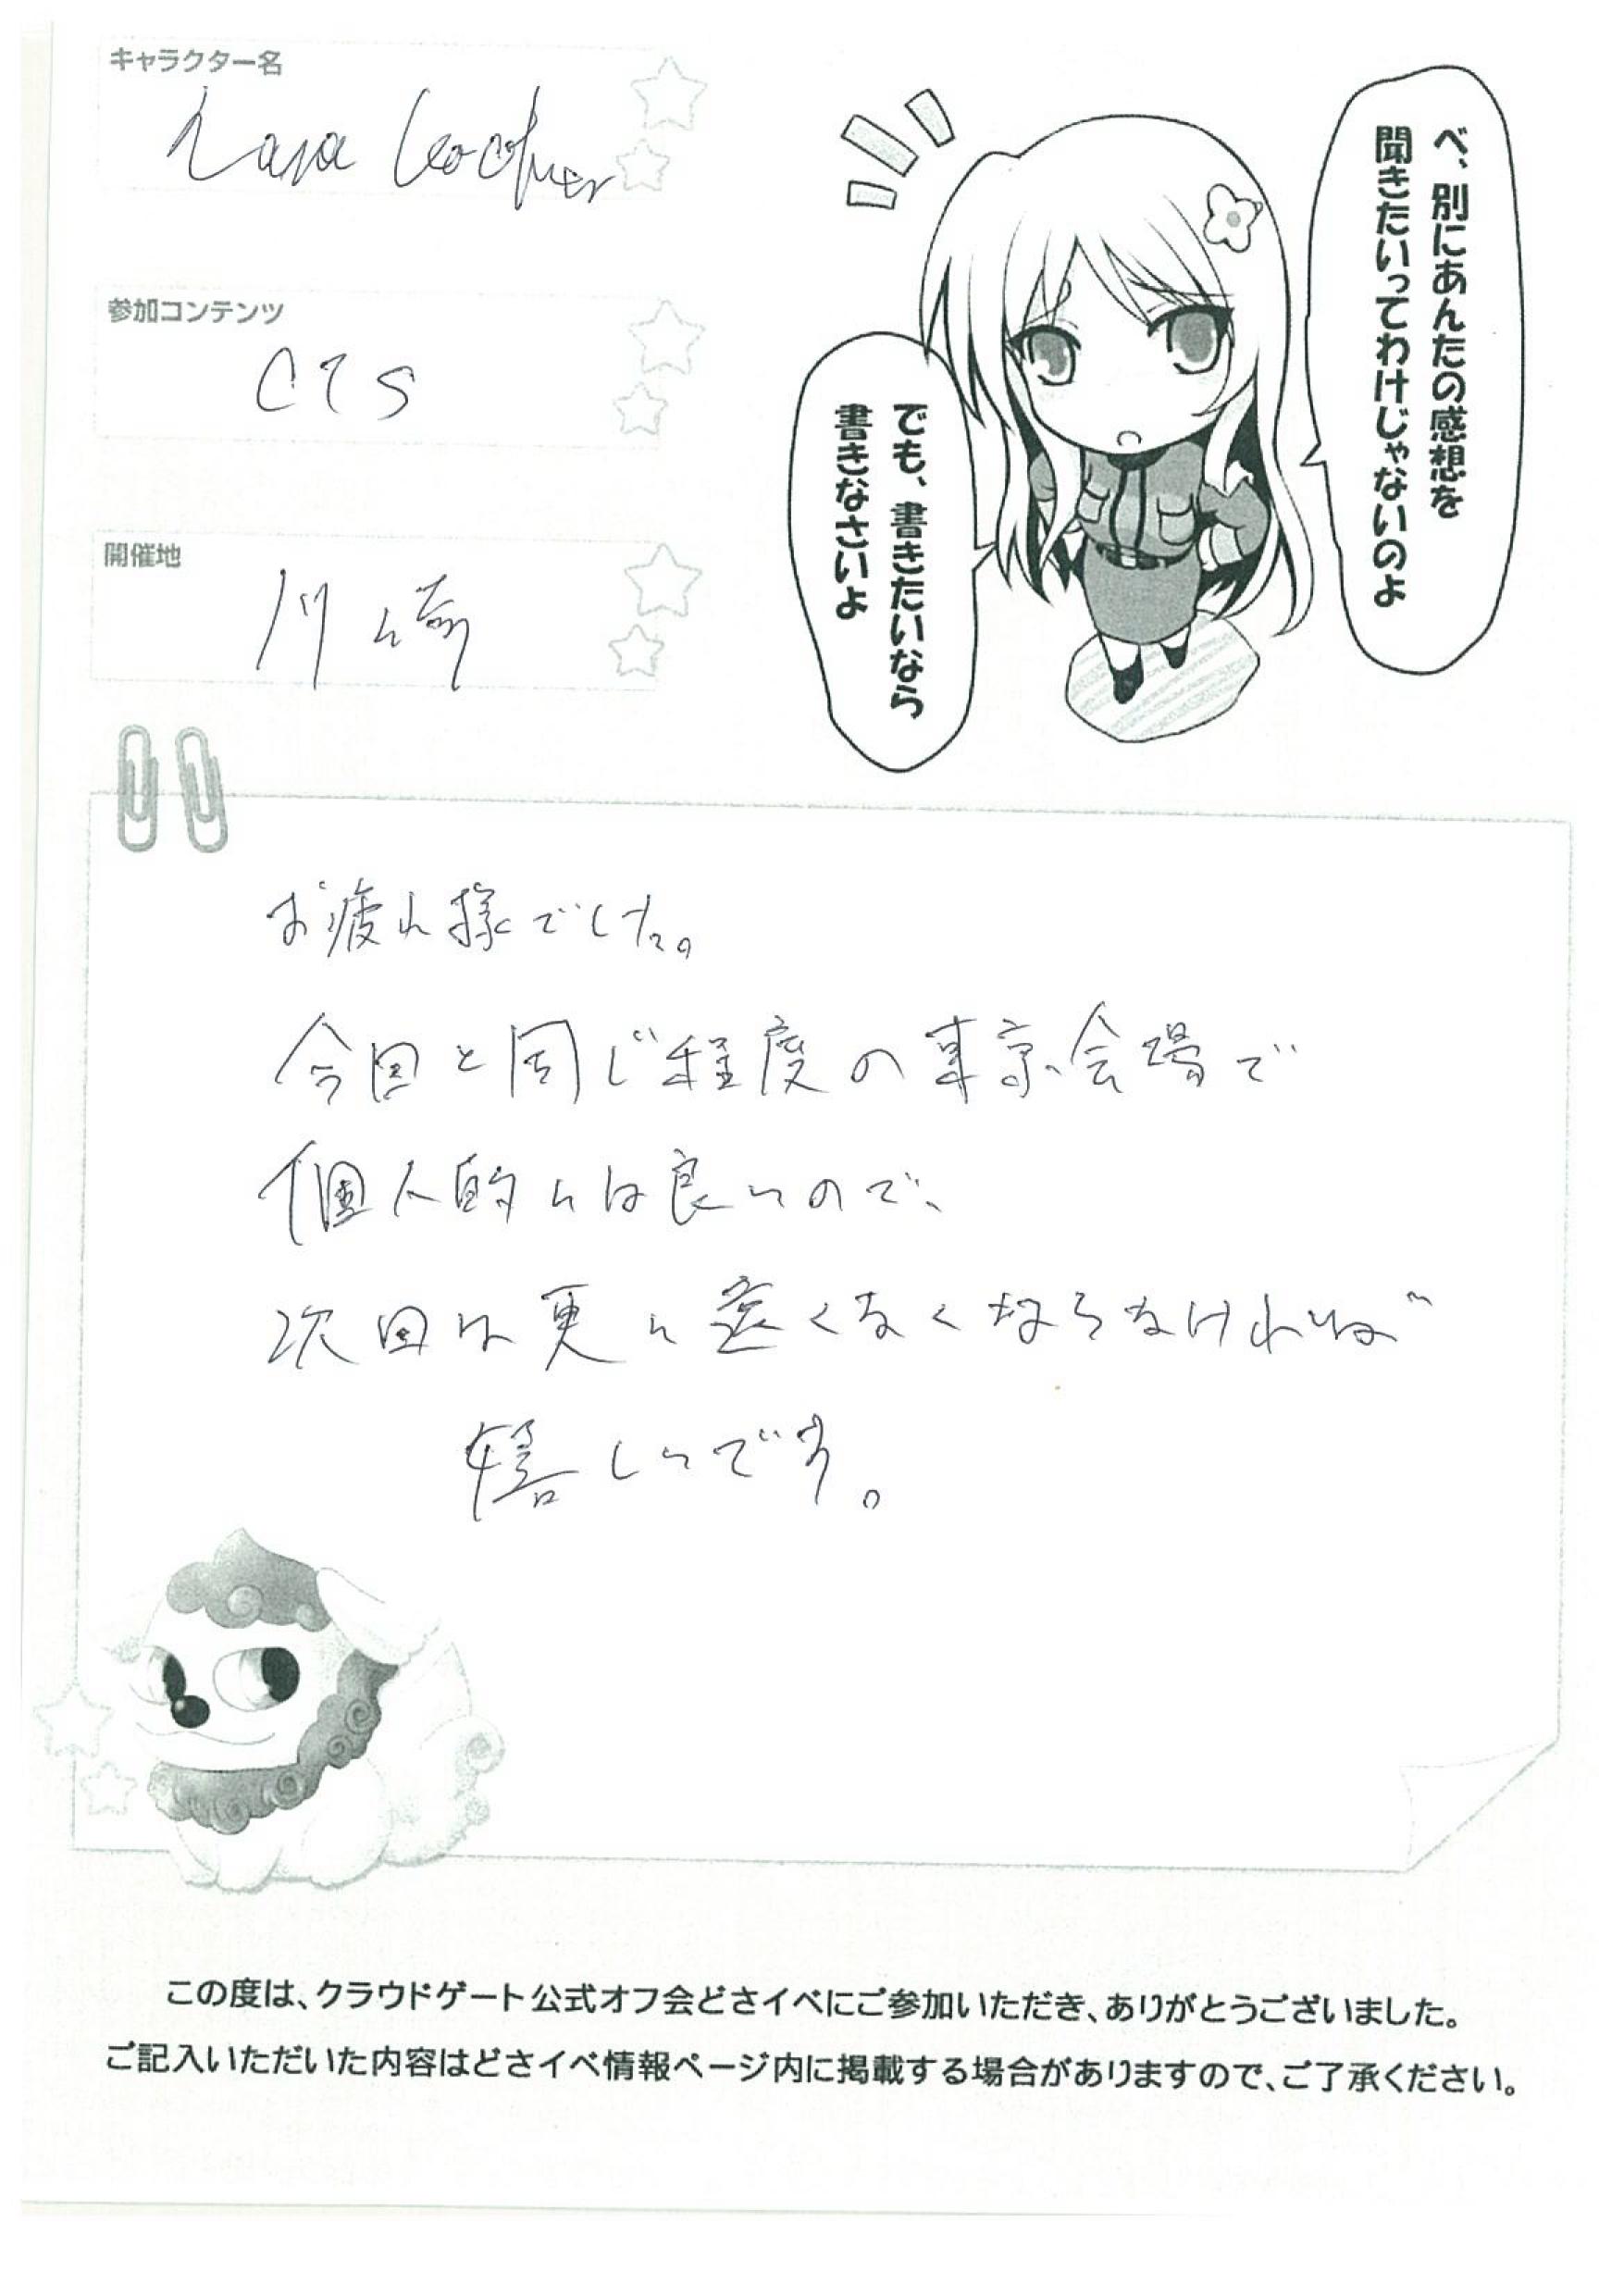 キャラクター名
参加コンテンツ
CTS
開催地
川崎
べ、別にあんたの感想を
聞きたいってわけじゃないのよ
でも、書きたいなら
書きなさいよ
お疲れ様でした。
今回と同じ程度の東京会場で
個人的には良いので、
次回は更に遠くなくならなければ
嬉しいです。
この度は、クラウドゲート公式オフ会どさイベにご参加いただき、ありがとうございました。
ご記入いただいた内容はどさイベ情報ページ内に掲載する場合がありますので、ご了承ください。